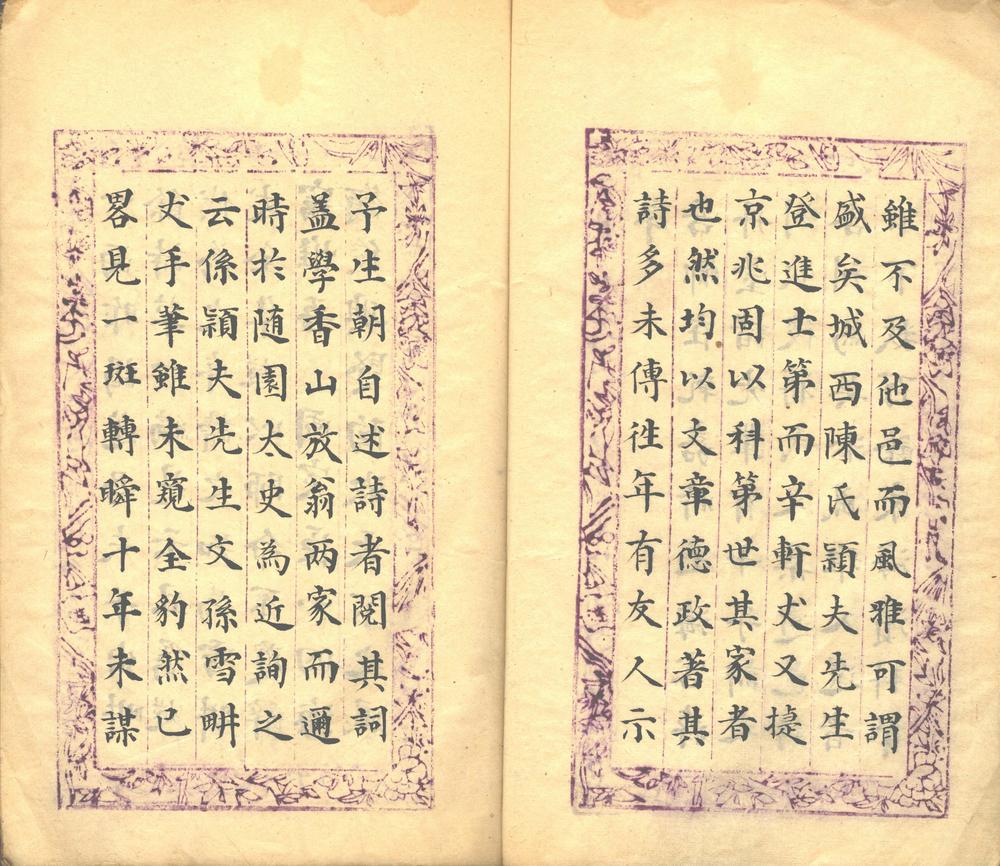 雖不及他邑而風雅可謂
盛矣城西陳氏穎夫先生
登進士第而辛軒丈又㨗
京兆固以科第世其家者
也然均以文章德政著其
詩多未傳徃年有友人示
予生朝自述詩者閱其詞
盖學香山放翁两家而邇
時於随園太史為近詢之
云係穎夫先生文孫雪畊
丈手筆雖未窺全豹然已
畧見一斑轉瞬十年未謀